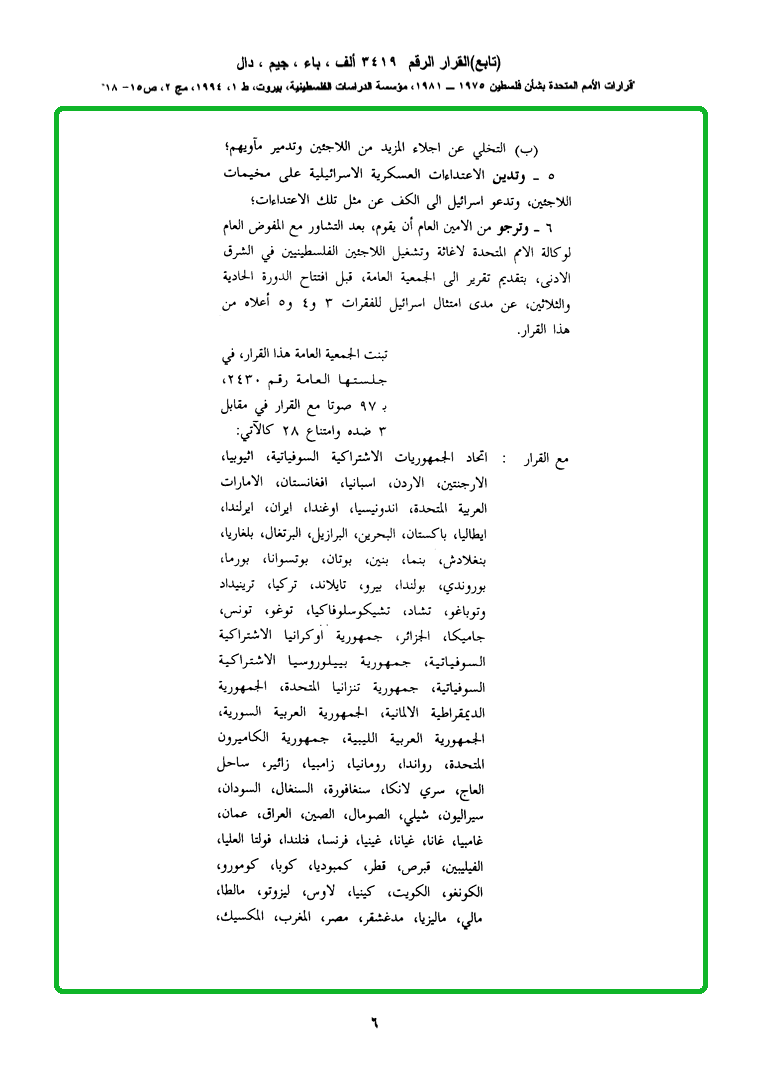 (تابع)القرار الرقم ٣٤١٩ ألف ، باء ، جيم ، دال
"قرارات الأمم المتحدة بشأن فلسطين ١٩٧٥ – ١٩٨١، مؤسسة الدراسات الفلسطينية، بيروت، ط ١، ١٩٩٤، مج ٢، ص١٥- ١٨"
(ب) التخلي عن اجلاء المزيد من اللاجئين وتدمير مآويهم؛
٥ ـ وتدين الاعتداءات العسكرية الاسرائيلية على مخيمات
اللاجئين، وتدعو اسرائيل الى الكف عن مثل تلك الاعتداءات؛
٦ ـ وترجو من الامين العام أن يقوم، بعد التشاور مع المفوض العام
لوكالة الامم المتحدة لاغاثة وتشغيل اللاجئين الفلسطينيين في الشرق
الادنى، بتقديم تقرير الى الجمعية العامة، قبل افتتاح الدورة الحادية
والثلاثين، عن مدى امتثال اسرائيل للفقرات ٣ و٤ و٥ أعلاه من
هذا القرار.
تبنت الجمعية العامة هذا القرار، في
جلستها العامة رقم ٢٤٣٠،
بـ ٩٧ صوتا مع القرار في مقابل
٣ ضده وامتناع ٢٨ كالآتي:
مع القرار : اتحاد الجمهوريات الاشتراكية السوفياتية، اثيوبيا،
الارجنتين، الاردن، اسبانيا، افغانستان، الامارات
العربية المتحدة، اندونيسيا، اوغندا، ايران، ايرلندا،
ايطاليا، باكستان، البحرين، البرازيل، البرتغال، بلغاريا،
بنغلادش، بنما، بنين، بوتان، بوتسوانا، بورما،
بوروندي، بولندا، بيرو، تايلاند، تركيا، ترينيداد
وتوباغو، تشاد، تشيكوسلوفاكيا، توغو، تونس،
جاميكا، الجزائر، جمهورية أوكرانيا الاشتراكية
السوفياتية، جمهورية بييلوروسيا الاشتراكية
السوفياتية، جمهورية تنزانيا المتحدة، الجمهورية
الديمقراطية الالمانية، الجمهورية العربية السورية،
الجمهورية العربية الليبية، جمهورية الكاميرون
المتحدة، رواندا، رومانيا، زامبيا، زائير، ساحل
العاج، سري لانكا، سنغافورة، السنغال، السودان،
سيراليون، شيلي، الصومال، الصين، العراق، عمان،
غامبيا، غانا، غيانا، غينيا، فرنسا، فنلندا، فولتا العليا،
الفيليبين، قبرص، قطر، كمبوديا، كوبا، كومورو،
الكونغو، الكويت، كينيا، لاوس، ليزوتو، مالطا،
مالي، ماليزيا، مدغشقر، مصر، المغرب، المكسيك،
٦